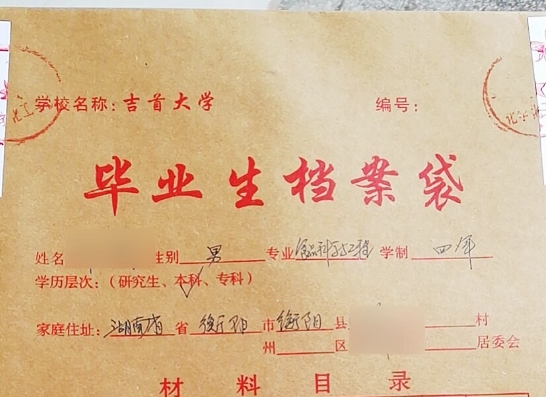 学校名称：吉首大学 编号：
毕业生档案袋
姓名 性别 男 专业 食品科学与工程 学制 四年
学历层次：（研究生、本科、专科）
家庭住址：湖南省 省 衡阳 市 衡阳 县 村
州 区 居委会
材料目录